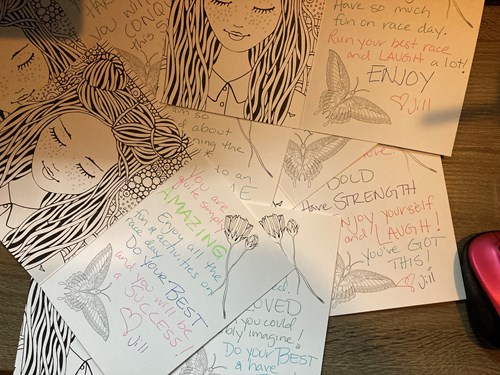 YOU WILL
CONQU
Have so much
fun on race day.
Run your best race
and LAUGH a lot!
ENJOY
Jill
am so
about
ning the
to an
BOLD
Have STRENGTH
ENJOY yourself
and LAUGH!
You've GOT
THIS!
Jill
You are
quite simply
AMAZING
Enjoy all the
fun & activities on
race day
Do YOUR BEST
and you will be
a SUCCESS!
Jill
LOVED
you could
bly imagine!
Do your BEST
& have